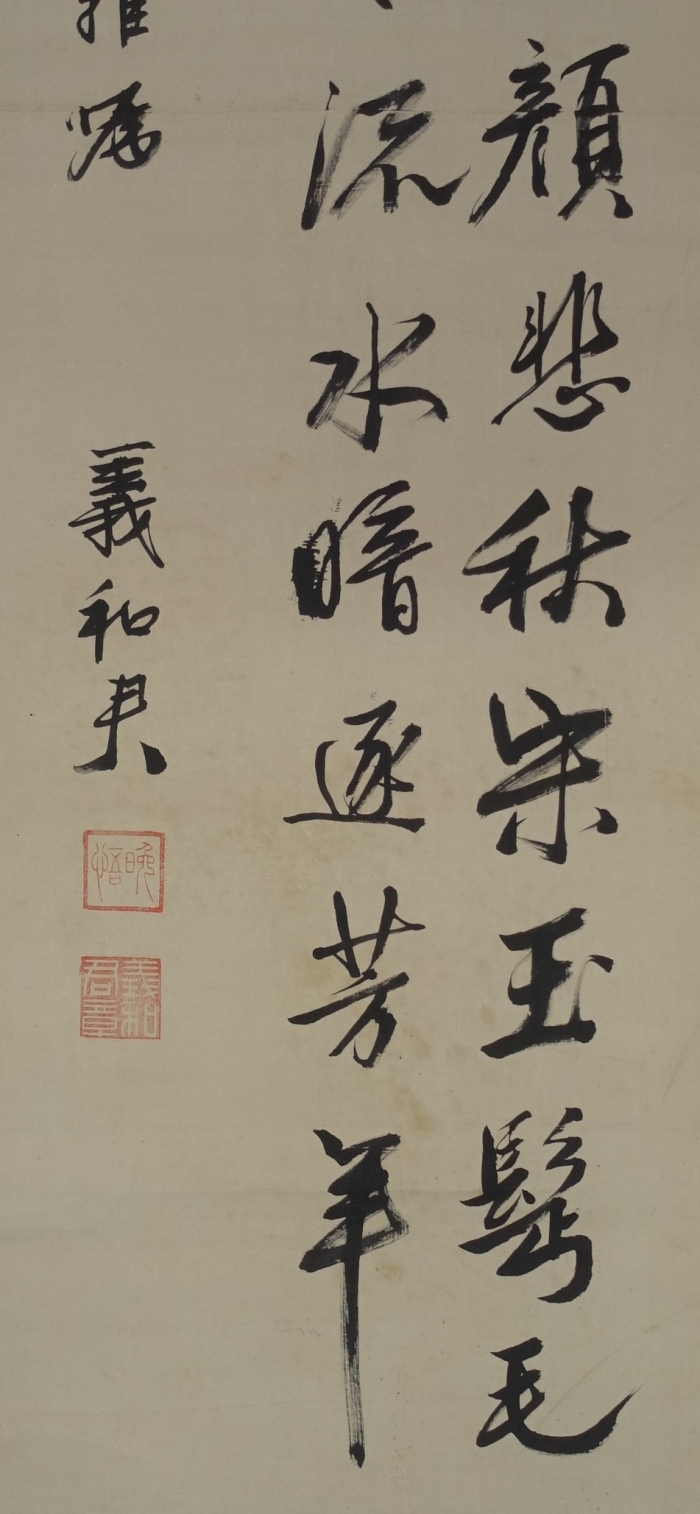 顏悲秋宋玉鬂毛
流水暗逐芳年
雅屬
義和尹
晚悟
義和君章